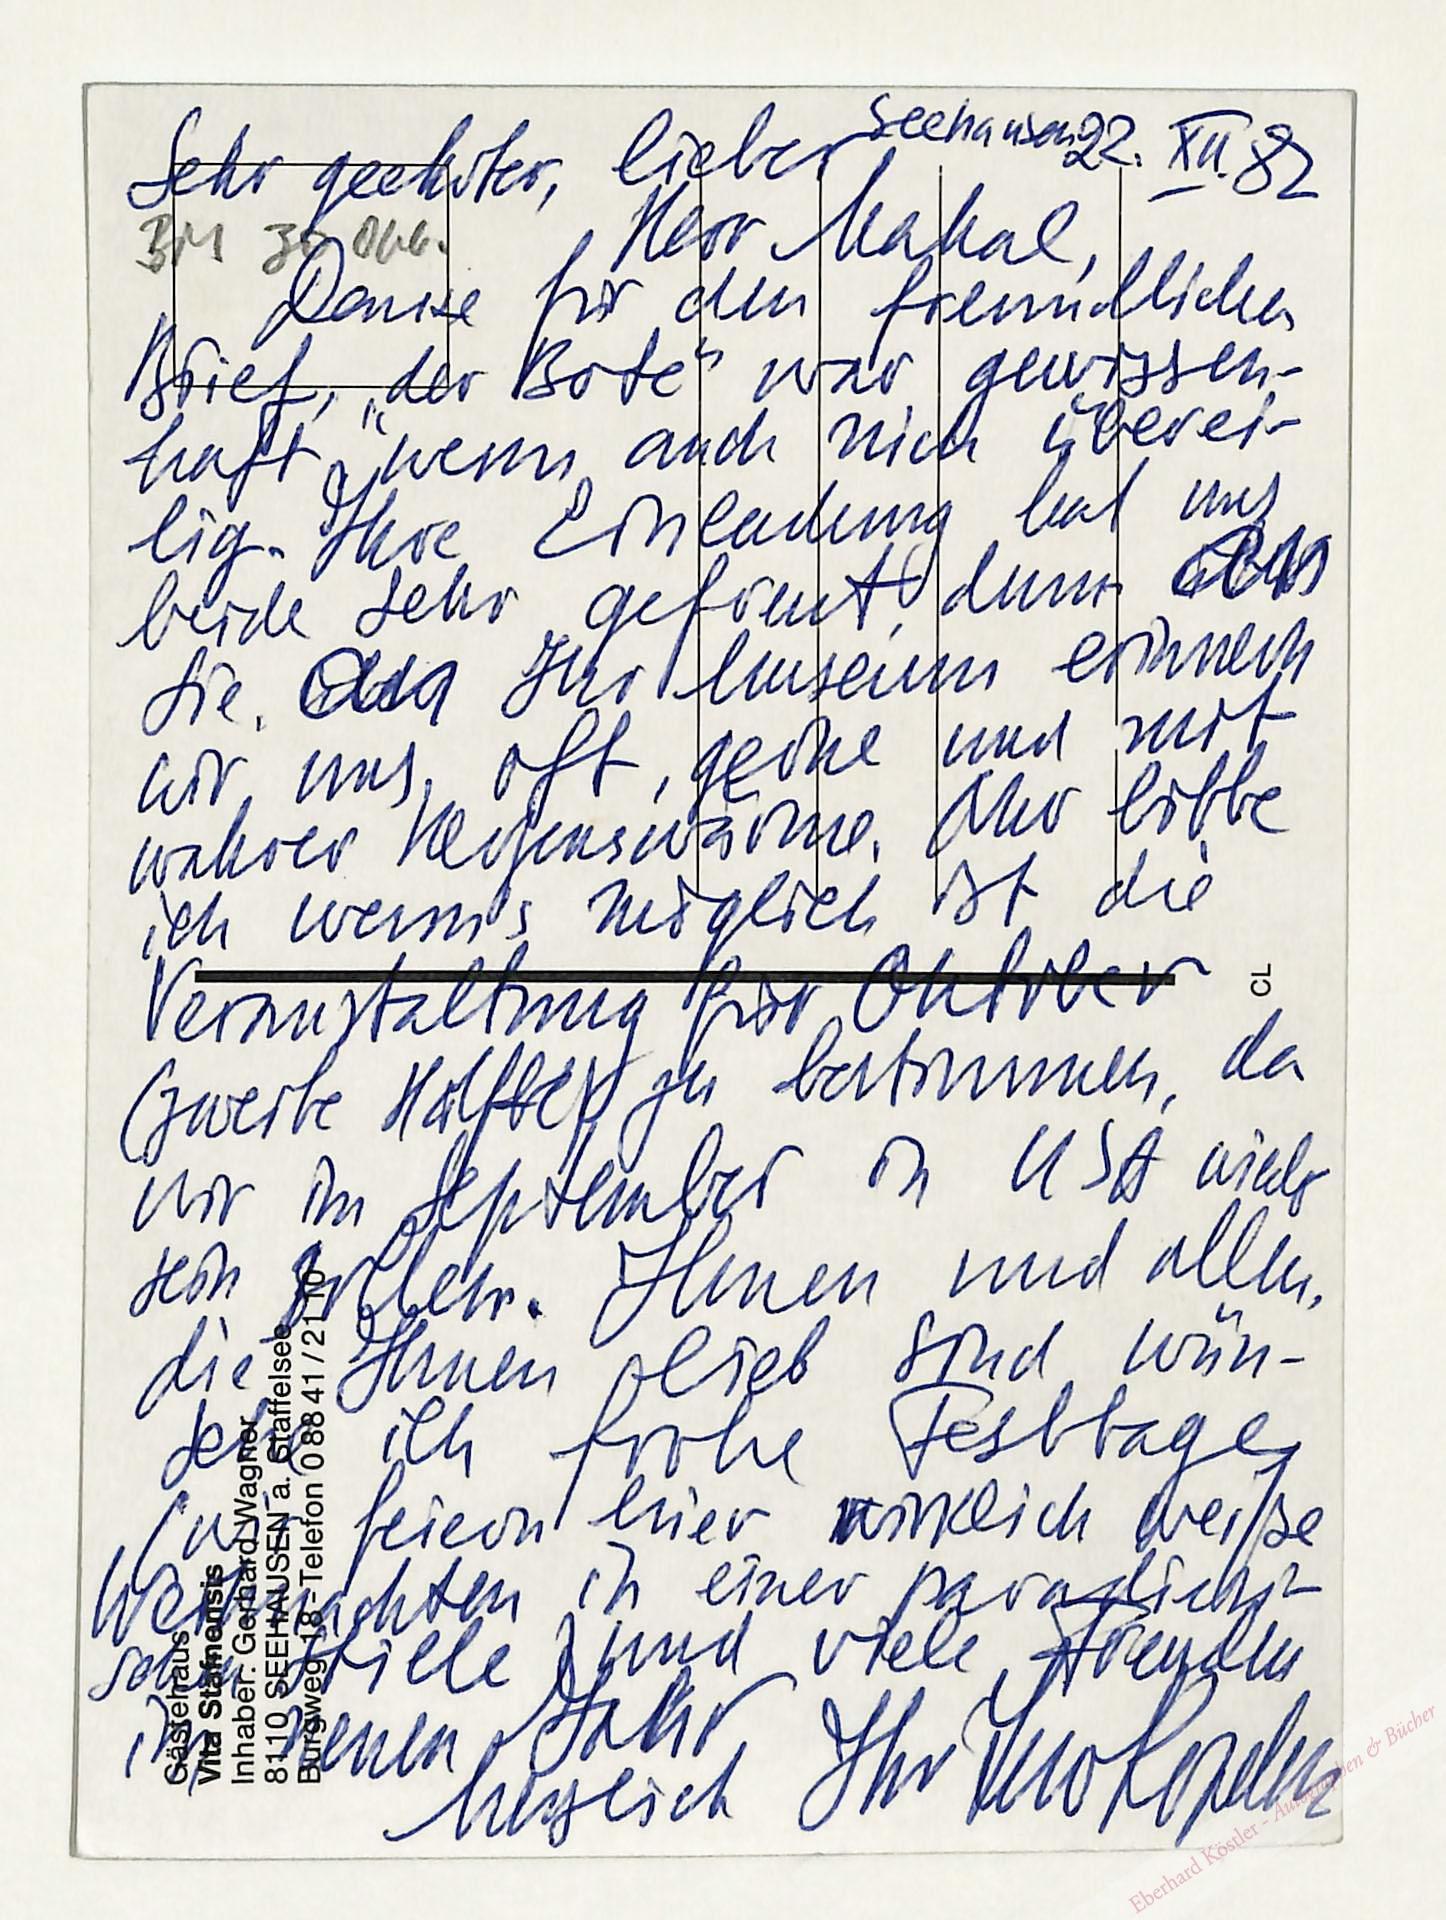 Seehausen 22. XII. 82
Sehr geehrter, lieber
Herr Makal,
BM 30 Okt.
Danke für den freundlichen
Brief, „der Bote“ war gewissen-
haft, wenn auch nich überei-
lig. Ihre Einladung hat uns
beide sehr gefreut, dum
Sie. An Ihr Museum erinnern
wir uns oft, gerne und mit
wahrer Herzenswärme. Nur bitte
ich wenn's möglich ist die
Veranstaltung für Oktober
(zweite Hälfte) zu bestimmen, da
wir im September in USA wieder
sein sollen. Ihnen und allen,
die Ihnen lieb sind wün-
sche ich frohe Festtage,
(wir feiern hier wirklich weiße
Weihnachten in einer paradiesi-
schen Stille) und viele Freuden
im neuen Jahr
herzlich Ihr
CL
Gästehaus
Vita Stafnensis
Inhaber: Gerhard Wagner
8110 SEEHAUSEN a. Staffelsee
Burgweg 18 - Telefon 0 88 41 / 21 10
Eberhard Köstler - Autographen & Bücher